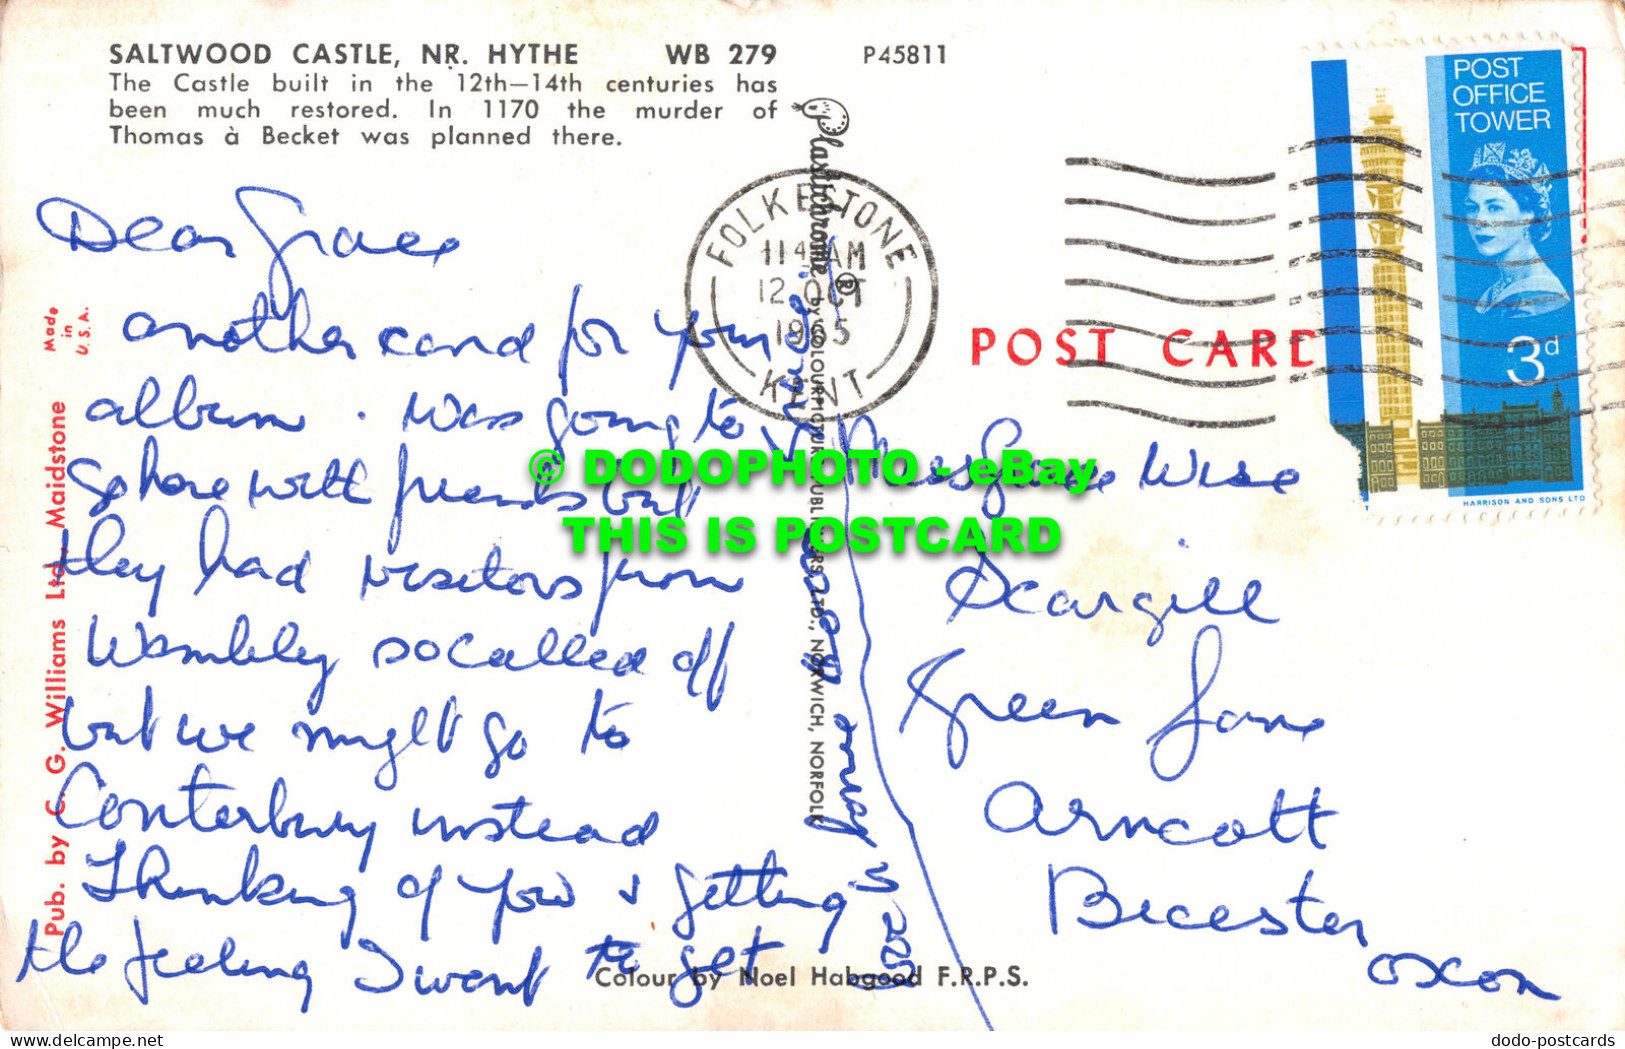 SALTWOOD CASTLE, NR. HYTHE WB 279 P45811
The Castle built in the 12th—14th centuries has
been much restored. In 1170 the murder of
Thomas à Becket was planned there.
Dear Grace
another card for your
album. Was going to
go here with friends but
they had visitors from
Wembley so called off
but we might go to
Canterbury instead
Thinking of you & getting
the feeling I want to get
Pub. by C. G. Williams Ltd., Maidstone
Made
in
U.S.A.
Plastichrome ® by COLOURPICTURE PUBLISHERS LTD., NORWICH, NORFOLK
Colour by Noel Habgood F.R.P.S.
FOLKESTONE
11 45 AM
12 OCT
1965
KENT
POST CARD
POST
OFFICE
TOWER
3d
HARRISON AND SONS LTD
Miss Grace Wise
Scargill
Green Lane
Arncott
Bicester
Oxon
© DODOPHOTO - eBay
THIS IS POSTCARD
dodo-postcards